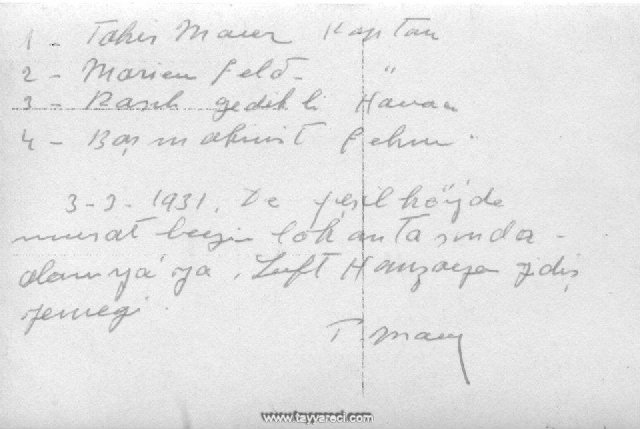 1 - Tahir Mauer Kaptan
2 - Marien Feld - "
3 - Rasih gedikli Havacı
4 - Baş makinist Fehmi
3-3-1931. De yeşilköyde
murat beyin lokantasında -
alamyá ya, Luft Hanzaya gidiş
yemegi
www.tayyareci.com